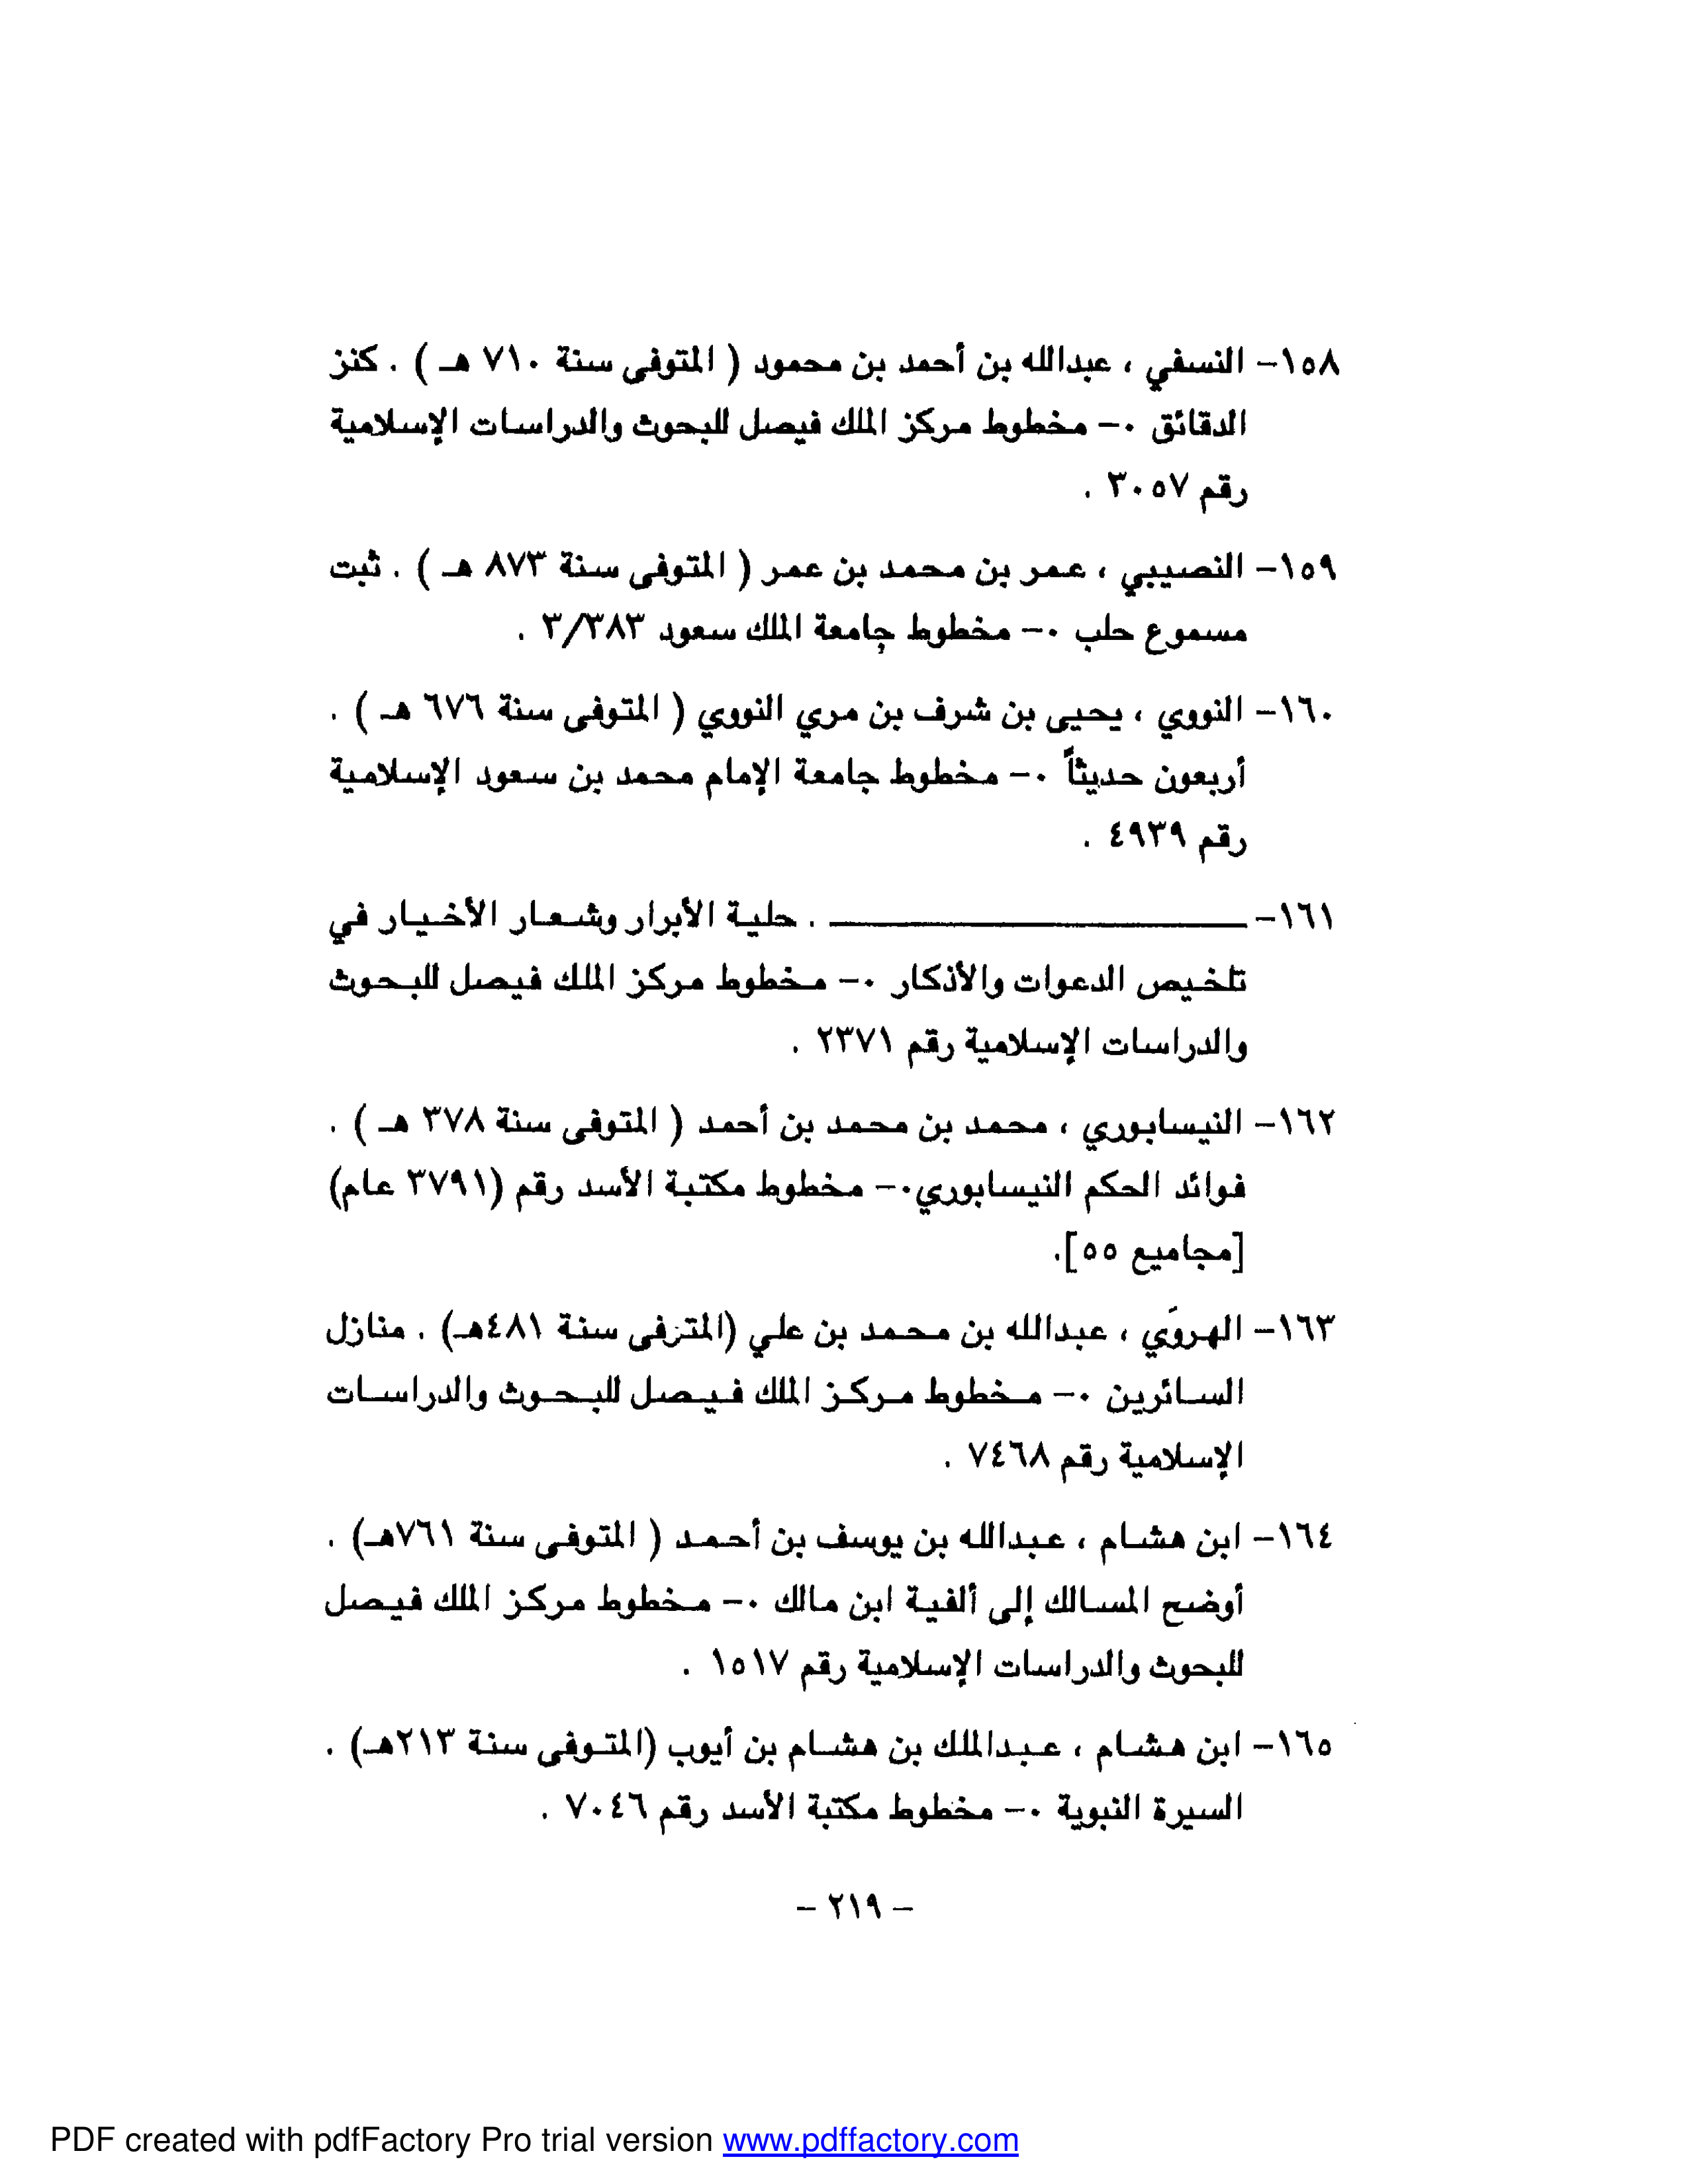 ١٥٨- النسفي ، عبدالله بن أحمد بن محمود ( المتوفى سنة ٧١٠ هـ ) . كنز
الدقائق ٠- مخطوط مركز الملك فيصل للبحوث والدراسات الإسلامية
رقم ٣٠٥٧ .
١٥٩- النصيبي ، عمر بن محمد بن عمر ( المتوفى سنة ٨٧٣ هـ ) . ثبت
مسموع حلب ٠- مخطوط جامعة الملك سعود ٣/٣٨٣ .
١٦٠- النووي ، يحيى بن شرف بن مري النووي ( المتوفى سنة ٦٧٦ هـ ) .
أربعون حديثاً ٠- مخطوط جامعة الإمام محمد بن سعود الإسلامية
رقم ٤٩٣٩ .
١٦١- ــــــــــــــــــــــــ . حلية الأبرار وشعار الأخيار في
تلخيص الدعوات والأذكار ٠- مخطوط مركز الملك فيصل للبحوث
والدراسات الإسلامية رقم ٢٣٧١ .
١٦٢- النيسابوري ، محمد بن محمد بن أحمد ( المتوفى سنة ٣٧٨ هـ ) .
فوائد الحكم النيسابوري٠- مخطوط مكتبة الأسد رقم (٣٧٩١ عام)
[مجاميع ٥٥].
١٦٣- الهروَي ، عبدالله بن محمد بن علي (المتوفى سنة ٤٨١هـ) . منازل
السائرين ٠- مخطوط مركز الملك فيصل للبحوث والدراسات
الإسلامية رقم ٧٤٦٨ .
١٦٤- ابن هشام ، عبدالله بن يوسف بن أحمد ( المتوفى سنة ٧٦١هـ) .
أوضح المسالك إلى ألفية ابن مالك ٠- مخطوط مركز الملك فيصل
للبحوث والدراسات الإسلامية رقم ١٥١٧ .
١٦٥- ابن هشام ، عبدالملك بن هشام بن أيوب (المتوفى سنة ٢١٣هـ) .
السيرة النبوية ٠- مخطوط مكتبة الأسد رقم ٧٠٤٦ .
- ٢١٩ -
PDF created with pdfFactory Pro trial version www.pdffactory.com